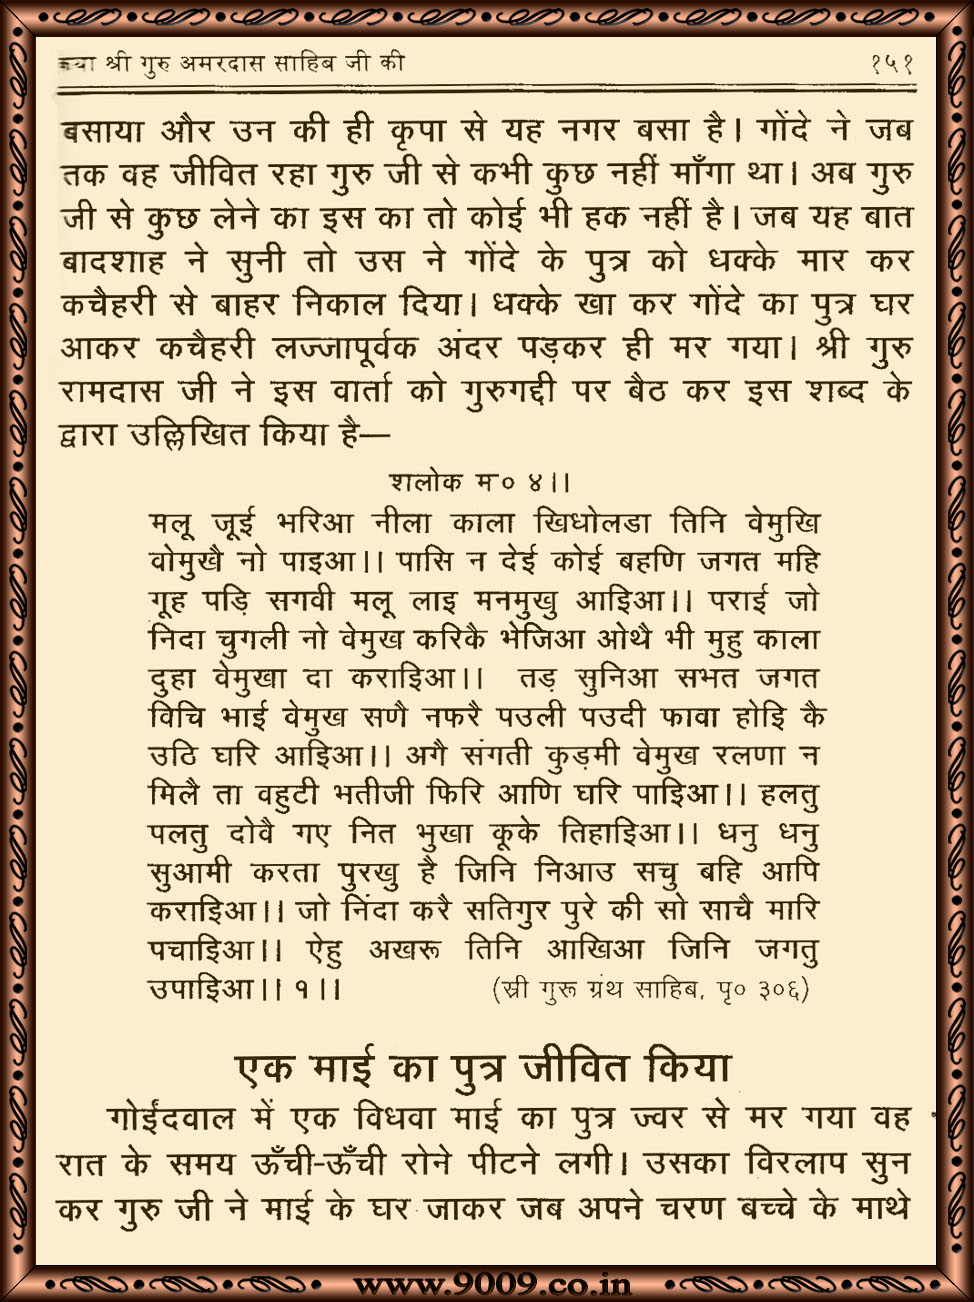 कथा श्री गुरु अमरदास साहिब जी की १५१
बसाया और उन की ही कृपा से यह नगर बसा है। गोंदे ने जब
तक वह जीवित रहा गुरु जी से कभी कुछ नहीं माँगा था। अब गुरु
जी से कुछ लेने का इस का तो कोई भी हक नहीं है। जब यह बात
बादशाह ने सुनी तो उस ने गोंदे के पुत्र को धक्के मार कर
कचैहरी से बाहर निकाल दिया। धक्के खा कर गोंदे का पुत्र घर
आकर कचैहरी लज्जापूर्वक अंदर पड़कर ही मर गया। श्री गुरु
रामदास जी ने इस वार्ता को गुरुगद्दी पर बैठ कर इस शब्द के
द्वारा उल्लिखित किया है—
शलोक म० ४।।
मलू जूई भरिआ नीला काला खिधोलडा तिनि वेमुखि
वोमुखै नो पाइआ।। पासि न देई कोई बहणि जगत महि
गूह पड़ि सगवी मलू लाइ मनमुखु आइिआ।। पराई जो
निदा चुगली नो वेमुख करिकै भेजिआ ओथै भी मुहु काला
दुहा वेमुखा दा कराइिआ।। तड़ सुनिआ सभत जगत
विचि भाई वेमुख सणै नफरै पउली पउदी फावा होइि कै
उठि घरि आइिआ।। अगै संगती कुड़मी वेमुख रलणा न
मिलै ता वहुटी भतीजी फिरि आणि घरि पाइिआ।। हलतु
पलतु दोवै गए नित भुखा कूके तिहाइिआ।। धनु धनु
सुआमी करता पुरखु है जिनि निआउ सचु बहि आपि
कराइिआ।। जो निंदा करै सतिगुर पुरे की सो साचै मारि
पचाइिआ।। ऐहु अखरू तिनि आखिआ जिनि जगतु
उपाइिआ।। १।। (स्री गुरू ग्रंथ साहिब, पृ० ३०६)
एक माई का पुत्र जीवित किया
गोईंदवाल में एक विधवा माई का पुत्र ज्वर से मर गया वह
रात के समय ऊँची-ऊँची रोने पीटने लगी। उसका विरलाप सुन
कर गुरु जी ने माई के घर जाकर जब अपने चरण बच्चे के माथे
www.9009.co.in